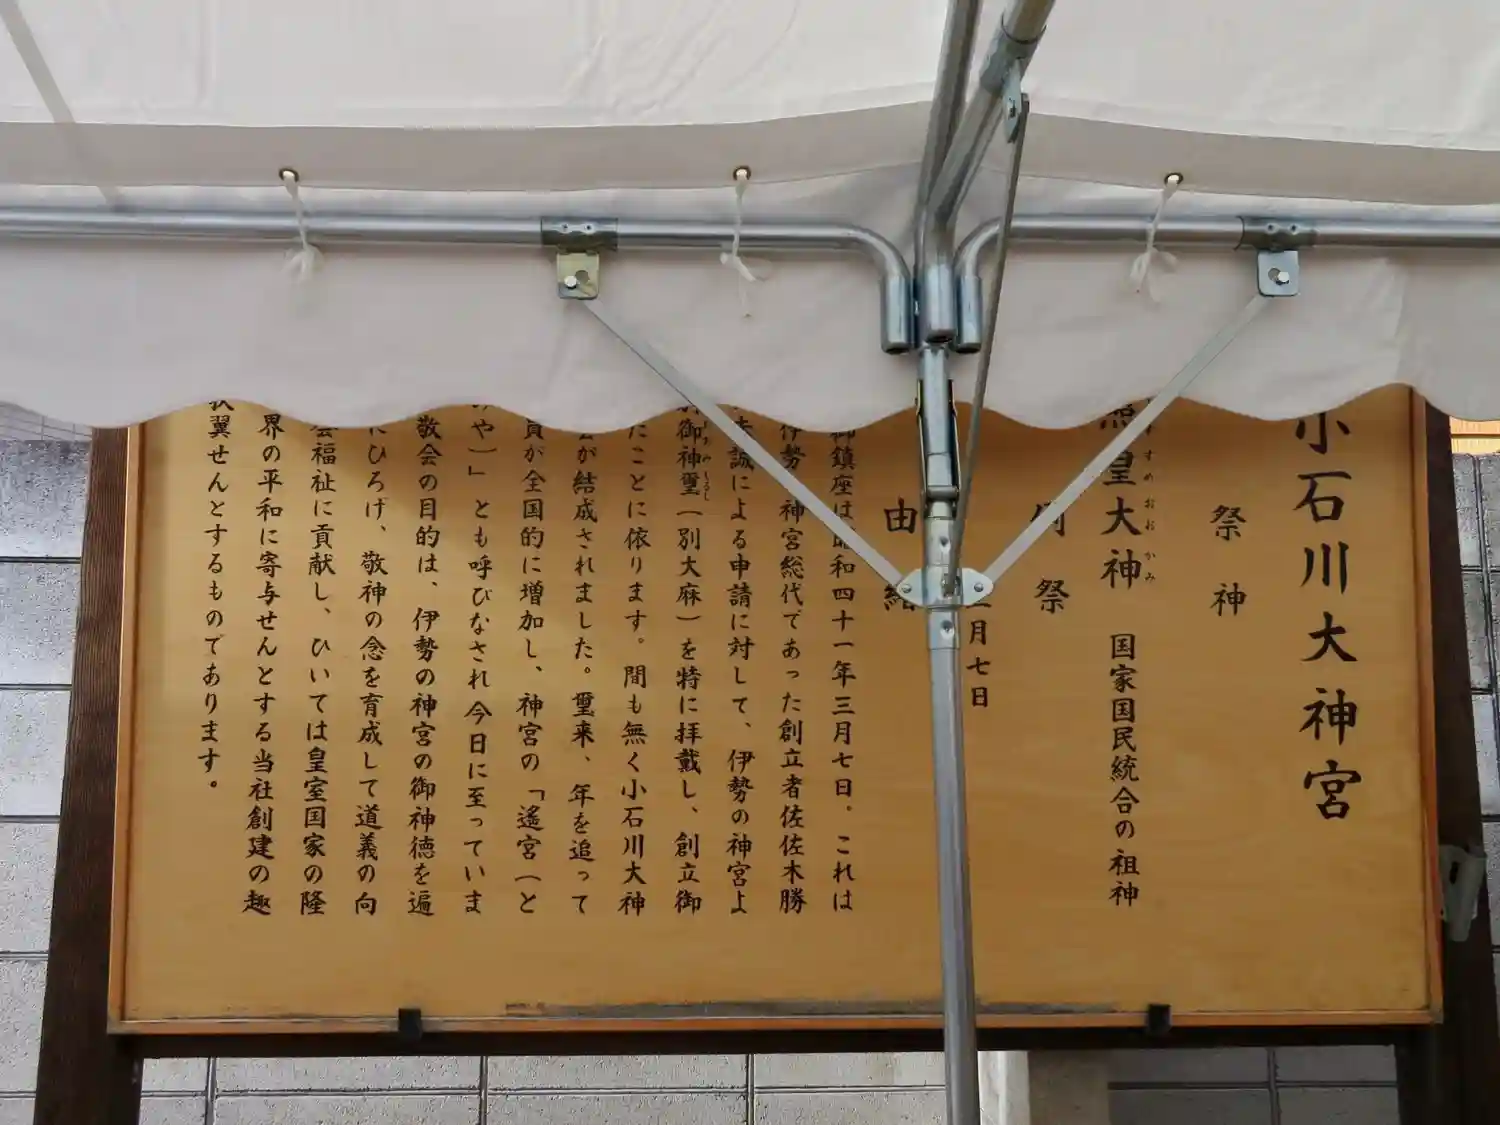 小石川大神宮
祭神
皇大神 国家国民統合の祖神
すめおおかみ
例祭
月七日
由緒
御鎮座は、昭和四十一年三月七日。これは
伊勢 神宮総代であった創立者佐佐木勝
誠による申請に対して、伊勢の神宮よ
御神璽(別大麻)を特に拝戴し、創立御
たことに依ります。間も無く小石川大神
会が結成されました。璽来、年を追って
員が全国的に増加し、神宮の「遙宮(と
みや)」とも呼びなされ今日に至っていま
敬会の目的は、伊勢の神宮の御神徳を遍
にひろげ、敬神の念を育成して道義の向
会福祉に貢献し、ひいては皇室国家の隆
界の平和に寄与せんとする当社創建の趣
翼せんとするものであります。